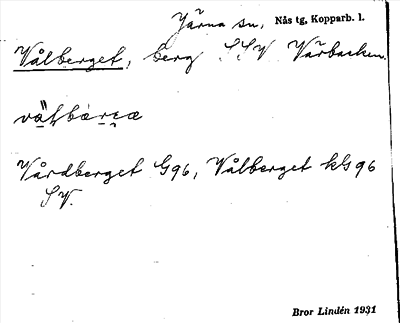 Järna sn, Nås tg, Kopparb. l.
Vålberget, berg S.S.V Vårbacken.
Vårdberget G96, Vålberget kG96
S.V.
Bror Lindén 1931